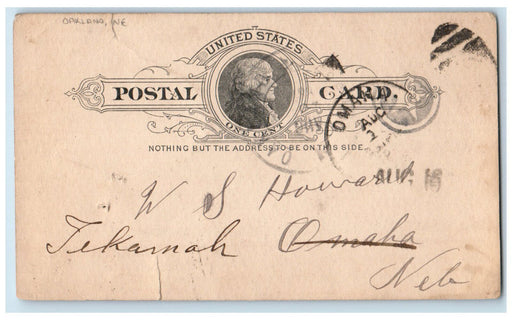 OAKLAND, NE
UNITED STATES
POSTAL CARD.
ONE CENT
NOTHING BUT THE ADDRESS TO BE ON THIS SIDE.
OMAHA
AUG
AUG 16
W S Howard
Tekamah Omaha
Neb